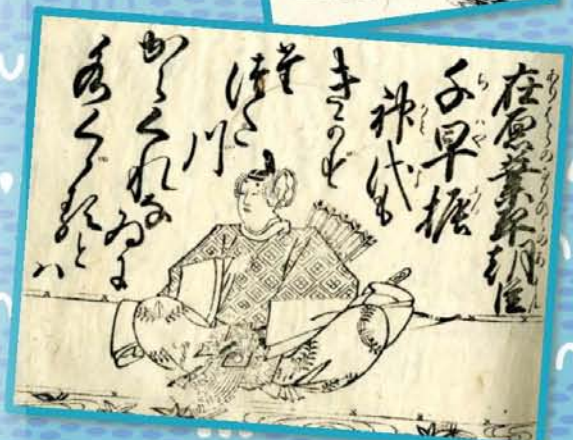 在原業平朝臣
千早振
神代も
きかず
川
からくれなゐに
水くゝるとハ